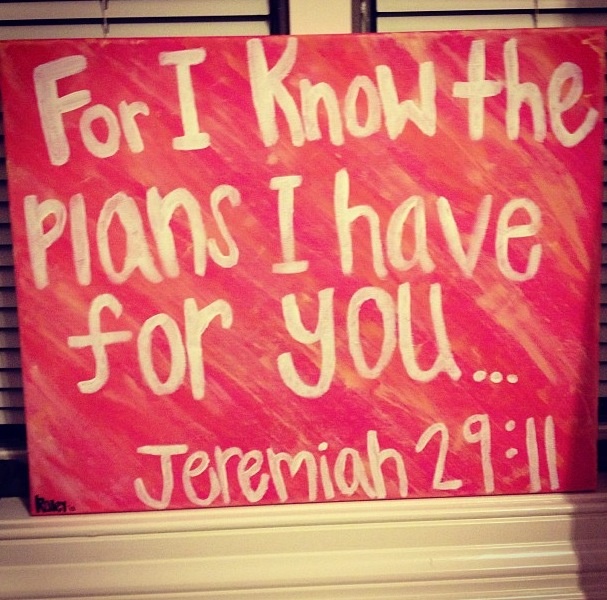 For I Know the
plans I have
for you...
Jeremiah 29:11